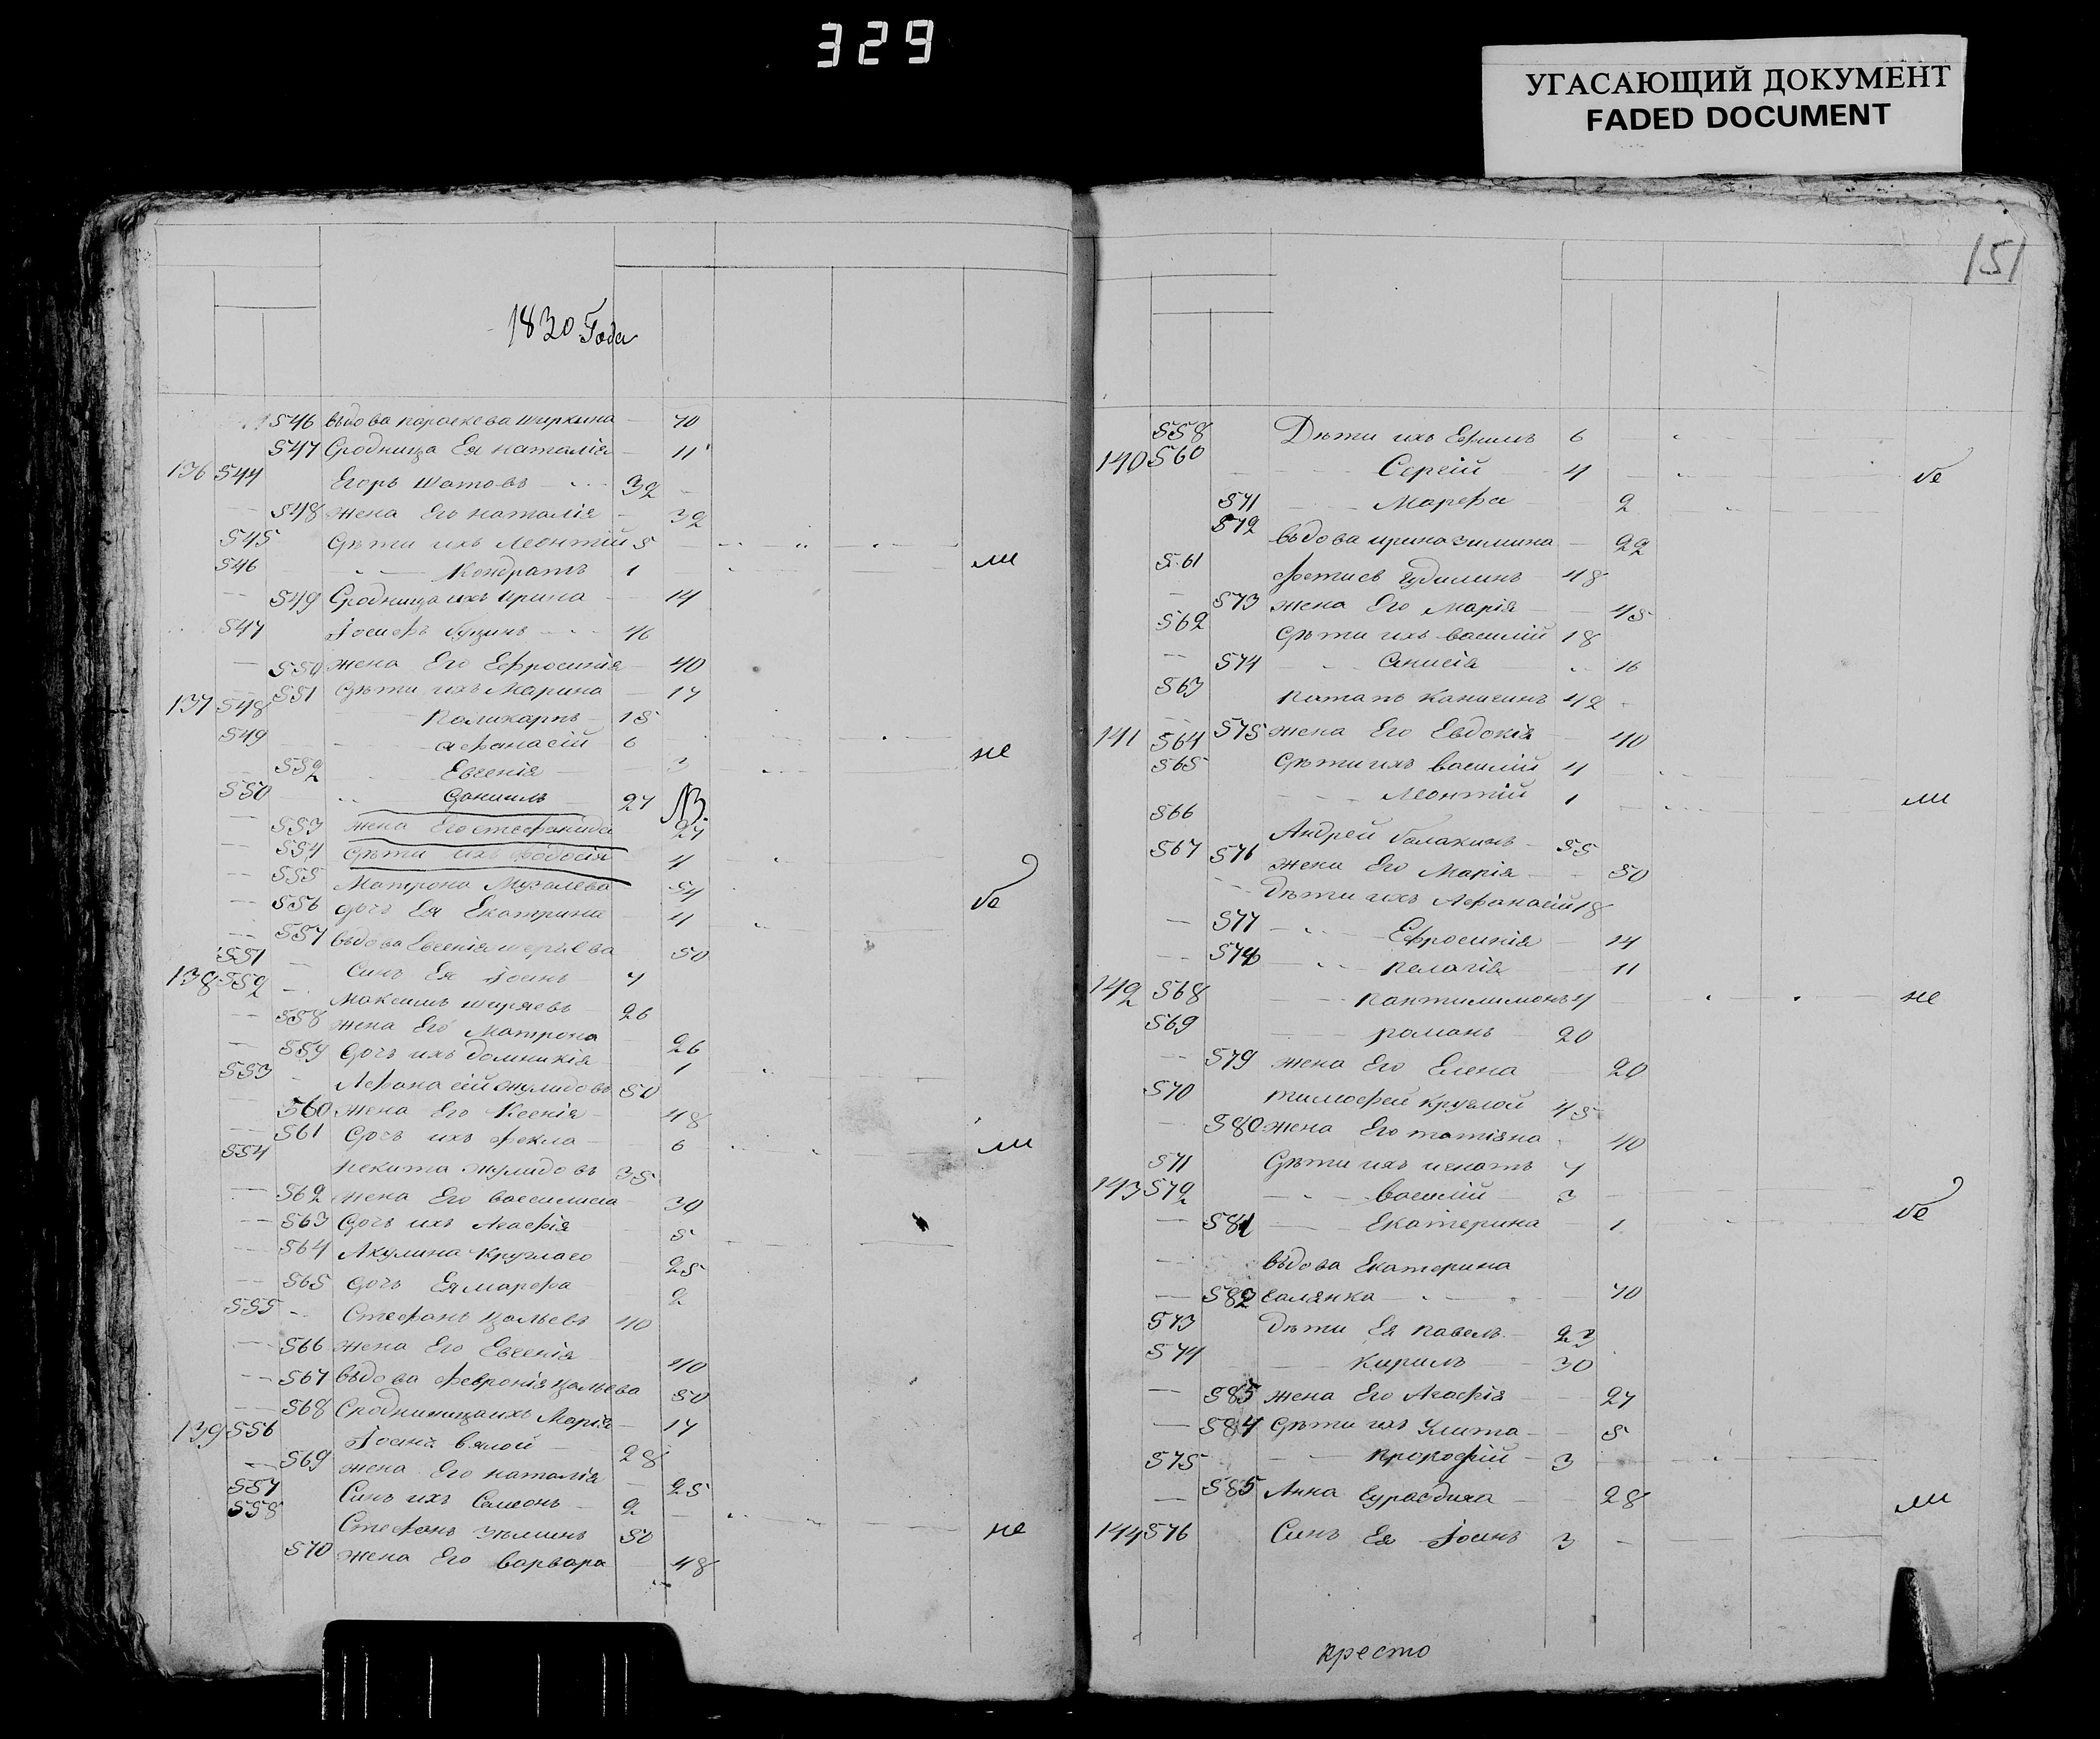 329
УГАСАЮЩИЙ ДОКУМЕНТ
FADED DOCUMENT
1830 Года
546 вдова параскева ширкина 70
547 Сродница Ея наталія 11
136 544 Егоръ Шатовъ 32
548 жена Его наталія 32
545 Дѣти ихъ Леонтій 5
546 Кондратъ 1 ли
549 Сродница ихъ Ирина 14
547 Іосифъ 46
550 жена Его Ефросинія 40
551 Дѣти ихъ Марина 17
137 548 Поликарпъ 15
549 афанасій 6 не
552 Евгенія 3
550 Даниилъ 27 NB.
553 жена Его стефанида 27
554 Дѣти ихъ Федосія 4
555 Матрона Музалева 54 ве
556 дочь Ея Екатрина 4
557 вдова Евгенія 50
551 Синъ Ея Іоанъ 7
138 552 Максимъ ширяевъ 26
558 жена Его Матрона 26
559 Дочь ихъ домникія 1
553 Афанасій жулидовъ 50
560 жена Его Ксенія 48
561 Дочь ихъ фекла 6 ли
554 Никита жулидовъ 35
562 жена Его василиса 30
563 Дочь ихъ Агафія 5
564 Акулина Круглаго 25
565 Дочь Ея марфа 2
555 Стефанъ 40
566 жена Его Евгенія 40
567 вдова февронія 50
568 ихъ Марія 17
139 556 Іоанъ вялой 28
569 жена Его наталія 25
557 Синъ ихъ Самсонъ 2
558 Стефанъ 50 не
570 жена Его варвара 48
151
558 Дѣти ихъ Ефимъ 6
140 560 Сергій 4 ве
571 Марфа 2
572 вдова ирина зимина 22
561 фетисъ 48
573 жена Его марія 45
562 Дѣти ихъ василій 18
574 Анисія 16
563 потапъ 42
141 564 575 жена Его Евдокія 40
565 Дѣти ихъ василій 4
Леонтій 1 ли
566 Андрей балакинъ 55
567 576 жена Его Марія 50
Дѣти ихъ Афанасій 18
577 Ефросинія 14
578 пелагія 11
142 568 пантилимонъ 4 не
569 романъ 20
579 жена Его Елена 20
570 тимофей круглой 45
580 жена Его татіяна 40
571 Дѣти ихъ игнатъ 7
143 572 василій 3
581 Екатерина 1 ве
вдова Екатерина
582 салянка 70
573 Дѣти Ея павелъ 23
574 кирилъ 30
583 жена Его Агафія 27
584 Дѣти ихъ Улита 5
575 прокофій 3
585 Анна 28 ли
144 576 Синъ Ея Іоанъ 3
кресто